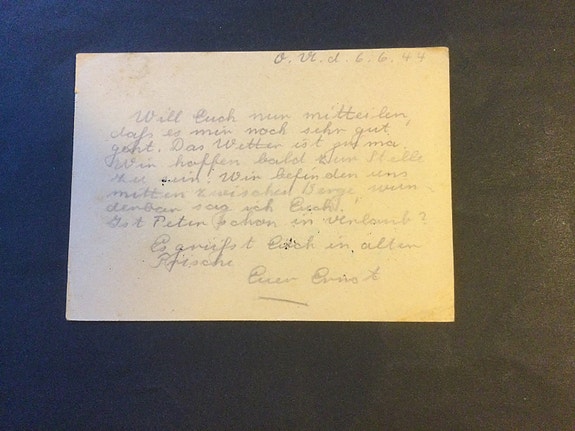 O. U. d. 6.6.44
Will Euch nur mitteilen,
daß es mir noch sehr gut
geht. Das Wetter ist prima
Wir hoffen bald zur Stelle
zu sein Wir befinden uns
mitten zwischen Berge wun-
derbar sag ich Euch!
Ist Peter schon in Urlaub?
Es grüßt Euch in alter
Frische
Euer Ernst